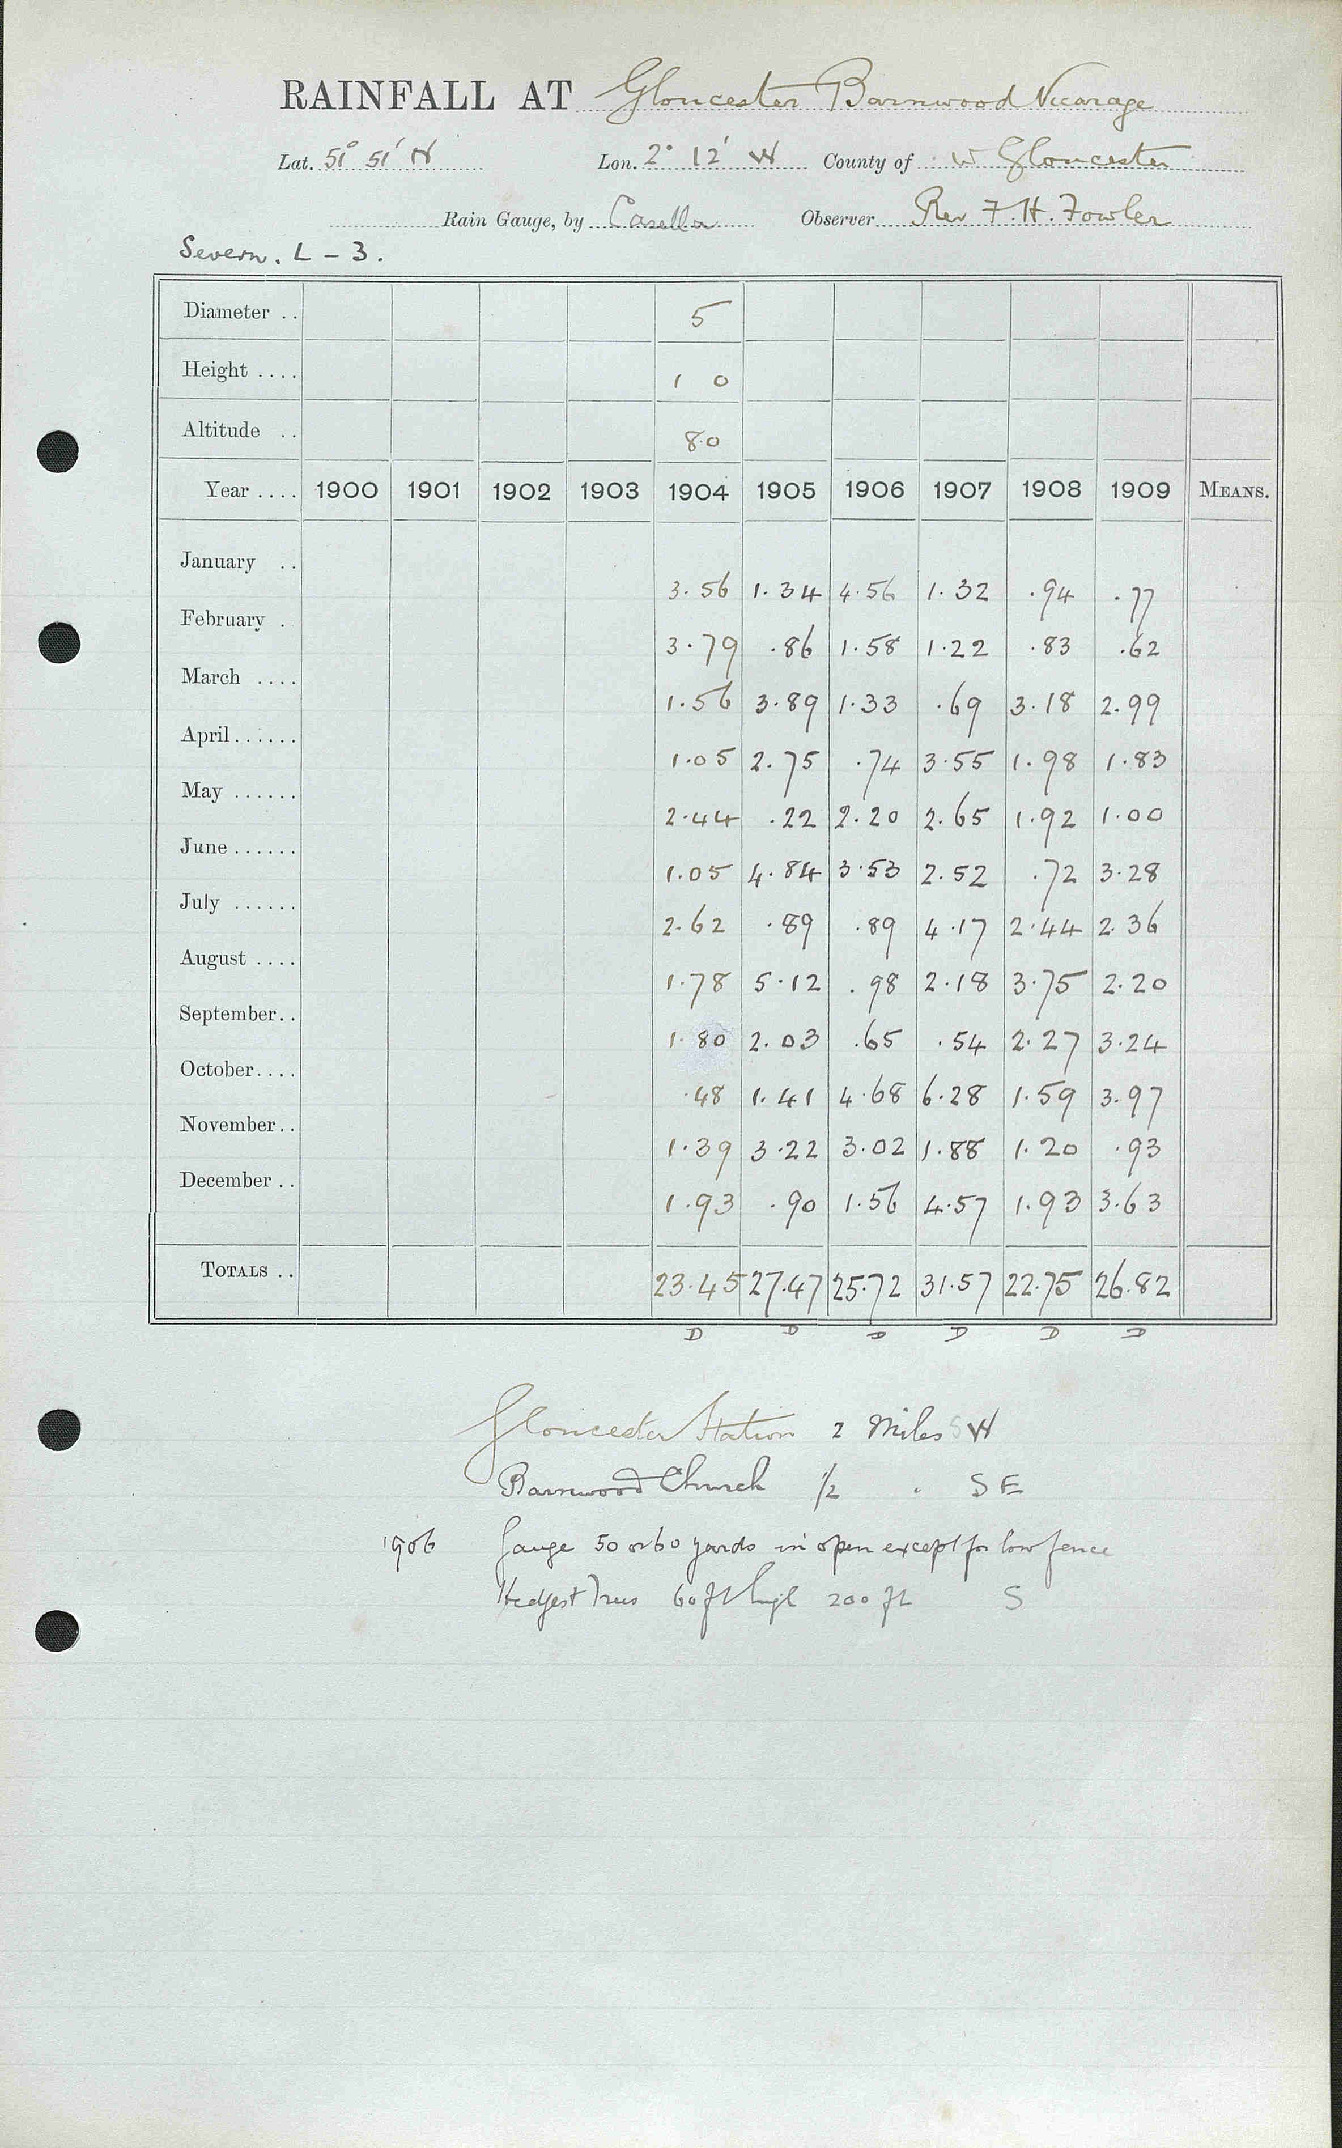 RAINFALL AT Gloucester Barnwood Vicarage
Lat. 51° 51' N Lon. 2° 12' W County of W Gloucester
Rain Gauge, by Casella Observer Rev F. H. Fowler
Severn. L - 3.
Diameter .. 5
Height .... 1 0
Altitude .. 80
Year .... 1900 1901 1902 1903 1904 1905 1906 1907 1908 1909 MEANS.
January .. 3.56 1.34 4.56 1.32 .94 .77
February . 3.79 .86 1.58 1.22 .83 .62
March .... 1.56 3.89 1.33 .69 3.18 2.99
April ...... 1.05 2.75 .74 3.55 1.98 1.83
May ...... 2.44 .22 2.20 2.65 1.92 1.00
June ...... 1.05 4.84 3.53 2.52 .72 3.28
July ...... 2.62 .89 .89 4.17 2.44 2.36
August .... 1.78 5.12 .98 2.18 3.75 2.20
September .. 1.80 2.03 .65 .54 2.27 3.24
October .... .48 1.41 4.68 6.28 1.59 3.97
November .. 1.39 3.22 3.02 1.88 1.20 .93
December .. 1.93 .90 1.56 4.57 1.93 3.63
TOTALS .. 23.45 27.47 25.72 31.57 22.75 26.82
D D D D D D
Gloucester Station 2 Miles SW
Barnwood Church 1/2 " SE
1906 Gauge 50 or 60 yards in open except for low fence
Trees 60 ft high 200 ft S